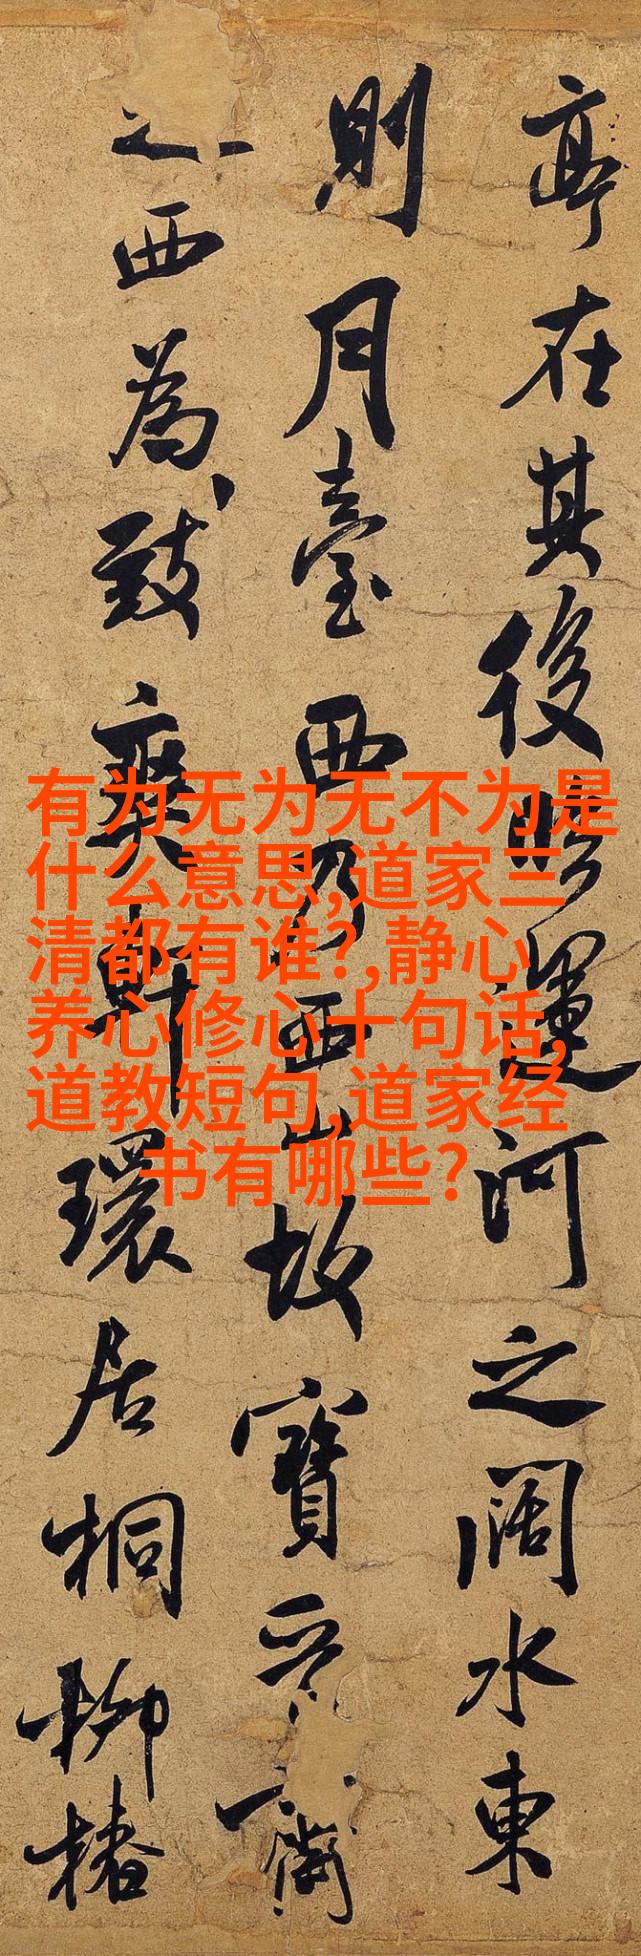 亭在其後瞰運河之闊水東
則月臺西乃西山故寶晉齋
之西為致爽軒環居桐柳椿
有为无为无不为是
什么意思,道家三
清都有谁?,静心
养心修心十句话,
道教短句,道家经
书有哪些?